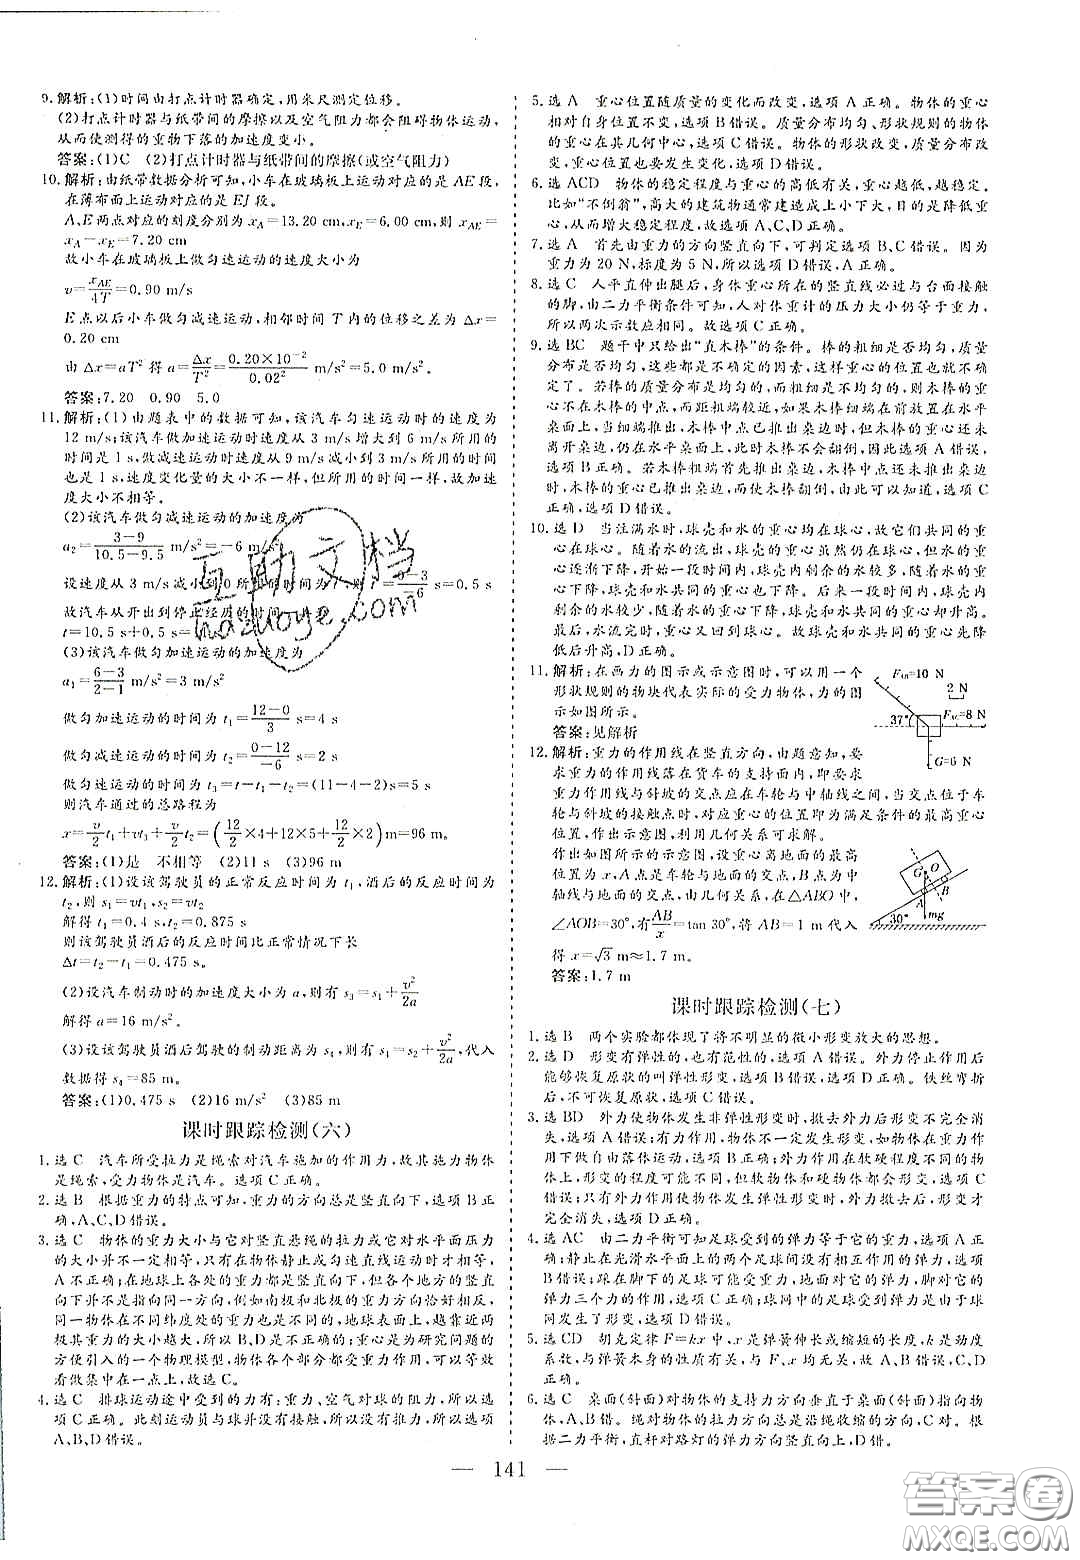 9. 解析:(1)时间由打点计时器确定,用米尺测定位移。
(2)打点计时器与纸带间的摩擦以及空气阻力都会阻碍物体运动,
从而使测得的重物下落的加速度变小。
答案:(1)C (2)打点计时器与纸带间的摩擦(或空气阻力)
10. 解析:由纸带数据分析可知,小车在玻璃板上运动对应的是 AE 段,
在薄布面上运动对应的是 EJ 段。
A、E 两点对应的刻度分别为 x_A=13.20 cm,x_E=6.00 cm,则 x_AE=
x_A-x_E=7.20 cm
故小车在玻璃板上做匀速运动的速度大小为
v=x_AE/4T=0.90 m/s
E 点以后小车做匀减速运动,相邻时间 T 内的位移之差为 Δx=
0.20 cm
由 Δx=aT² 得 a=Δx/T²=0.20×10⁻²/0.02² m/s²=5.0 m/s²
答案:7.20 0.90 5.0
11. 解析:(1)由题表中的数据可知,该汽车匀速运动时的速度为
12 m/s;该汽车做加速运动时的速度从 3 m/s 增大到 6 m/s 所用的
时间是 1 s,做减速运动时的速度从 9 m/s 减小到 3 m/s 所用的时间
也是 1 s,速度变化量的大小不一样,但所用的时间一样,故加速度
大小不相等。
(2)该汽车做匀减速运动的加速度为
a₂=3-9/10.5-9.5 m/s²=-6 m/s²
设速度从 3 m/s 减小到 0 所用的时间为 t,则 t=0-3/-6 s=0.5 s
故汽车从开出到停止经历的时间
t=10.5 s+0.5 s=11 s
(3)该汽车做匀加速运动的加速度为
a₁=6-3/2-1 m/s²=3 m/s²
做匀加速运动的时间为 t₁=12-0/3 s=4 s
做匀减速运动的时间为 t₂=0-12/-6 s=2 s
做匀速运动的时间为 t₃=t-t₁-t₂=(11-4-2)s=5 s
则汽车通过的总路程为
x=v/2 t₁+vt₃+v/2 t₂=(12/2×4+12×5+12/2×2)m=96 m。
答案:(1)是 不相等 (2)11 s (3)96 m
12. 解析:(1)设该驾驶员的正常反应时间为 t₁,酒后的反应时间为
t₂,则 s₁=vt₁,s₂=vt₂
解得 t₁=0.4 s,t₂=0.875 s
则该驾驶员酒后的反应时间比正常情况下长
Δt=t₂-t₁=0.475 s。
(2)设汽车制动时的加速度大小为 a,则有 s₃=s₁+v²/2a
解得 a=16 m/s²。
(3)设该驾驶员酒后驾驶的制动距离为 s₄,则有 s₄=s₂+v²/2a,代入
数据得 s₄=85 m。
答案:(1)0.475 s (2)16 m/s² (3)85 m
课时跟踪检测(六)
1. 选 C 汽车所受拉力是绳索对汽车施加的作用力,故其施力物体
是绳索,受力物体是汽车。选项 C 正确。
2. 选 B 根据重力的特点可知,重力的方向总是竖直向下,选项 B 正
确,A、C、D 错误。
3. 选 C 物体的重力大小与它对竖直悬绳的拉力或它对水平面压力
的大小并不一定相等,只有在物体静止或匀速直线运动时才相等,
A 不正确;在地球上各处的重力都是竖直向下,但各个地方的竖直
向下并不是指同一方向,例如南极和北极的重力方向恰好相反,
同一物体在不同纬度处的重力大小也不同,地球表面上,越靠近两
极其重力的大小越大,所以 B、D 是不正确的;重心是为研究问题的
方便引入的一个物理模型,物体各个部分都受重力作用,可以等效
看做集中在一点上,故选 C。
4. 选 C 排球运动途中受到的力有:重力、空气对球的阻力,所以选项
C 正确。此刻运动员与球并没有接触,所以没有推力,所以选项
A、B、D 错误。
5. 选 A 重心位置随质量的变化而改变,选项 A 正确。物体的重心
相对自身位置不变,选项 B 错误。质量分布均匀、形状规则的物体
的重心在其几何中心,选项 C 错误。物体的形状改变,质量分布
情况可能也要发生变化,选项 D 错误。
6. 选 ACD 物体的稳定程度与重心的高低有关,重心越低,越稳定。
比如“不倒翁”,高大的建筑物通常建造成上小下大,目的是降低重
心,从而增大稳定程度,故选项 A、C、D 正确。
7. 选 A 首先由重力的方向竖直向下,可判定选项 B、C 错误。因为
重力为 20 N,标度为 5 N,所以选项 D 错误,A 正确。
8. 选 C 人平直伸出腿后,身体重心所在的竖直线必过与台面接触
的脚,由二力平衡条件可知,人对体重计的压力大小仍等于重力,
所以两次示数应相同。故选项 C 正确。
9. 选 BC 题干中只给出“直木棒”的条件。棒的粗细是否均匀,质量
分布是否均匀,这些都是不确定的因素,这样重心的位置也就不确
定了。若棒的质量分布是均匀的,而粗细是不均匀的,则木棒的重
心不在棒的中点,而距粗端较近,如果木棒的细端在前放置在水平
桌面上,当细端推出桌边,木棒的中点过桌边时,木棒的重心还未
离开桌边,仍处于水平桌面上,此时木棒不会翻倒,故选项 A 错误,
选项 B 正确。若木棒粗端首先推出桌边,木棒的中点推出桌边时,
木棒的重心已推出桌边,于是木棒翻倒,由此可知选项 C 正确。
综上所述,选项 D 错误。
10. 选 D 当注满水时,球壳和水的重心均在球心,故它们共同的重
心在球心。随着水的流出,球壳的重心虽然仍在球心,但水的重
心逐渐下降,开始一段时间内,球壳内剩余的水较多,随着水的重
心下降,球壳和水共同的重心也下降。后来一段时间内,球壳内
剩余的水较少,随着水的重心下降,球壳和水共同的重心却升高。
最后,水流完时,重心又回到球心。故球壳和水共同的重心先降
低后升高,D 正确。
11. 解析:在画力的图示或示意图时,可以用一个
形状规则的物块代表实际的受力物体,力的图
示如图所示。
答案:见解析
2 N
37°
G=6 N
12. 解析:重力的作用线在竖直方向,由题意知,要
求重力的作用线落在货车的支持面内,即要求
重力作用线与斜坡的交点应在车轮与中轴线之间,当交点位于车
轮与斜坡的接触点时,对应重心位置为满足条件的最高重心
位置,作出示意图,利用几何关系可求解。
作出如图所示的示意图,设重心离地面的高度
为 x,A 点是车轮与地面的交点,B 点为中
轴线与地面的交点,由几何关系,在△ABO 中,
∠AOB=30°,有AB/x=tan 30°,将 AB=1 m 代入
得 x=√3 m≈1.7 m。
答案:1.7 m
G
O
A
B
30°
mg
课时跟踪检测(七)
1. 选 B 两个实验都体现了将不明显的微小形变放大的思想。
2. 选 D 形变有弹性的,也有范性的,选项 A 错误。外力停止作用后
能够恢复原状的叫弹性形变,选项 B 错误,D 正确。铁丝弯折
后,不可恢复原状,选项 C 错误。
3. 选 BD 外力使物体发生非弹性形变时,撤去外力后形变不完全消
失,选项 A 错误;有力作用,物体不一定发生形变,如物体在重力作
用下做自由落体运动,选项 B 正确;力作用在软硬程度不同的物体
上,形变程度可能不同,但软物体和硬物体都会发生形变,选项 C
错误;只有外力使物体发生弹性形变时,外力撤去后,形变才可
完全消失,选项 D 正确。
4. 选 AC 由二力平衡可知足球受到的弹力等于它的重力,选项 A 正
确;静止在光滑水平面上的两个足球间没有相互作用的弹力,选项
B 错误;踩在脚下的足球可能受重力,地面对它的弹力,脚对它的
弹力三个力的作用,选项 C 正确;球网中的足球受力是由于球
网发生了形变,选项 D 错误。
5. 选 CD 胡克定律 F=kx 中,x 是弹簧伸长或缩短的长度,k 是劲度
系数,与弹簧本身的性质有关,与 F、x 均无关,故 A、B 错,C、D 正确。
6. 选 C 桌面(斜面)对物体的支持力方向垂直于桌面(斜面)指向物
体,A、B 错。绳对物体的拉力方向总是沿绳收缩的方向,C 对。根
据二力平衡,直杆对路灯的弹力方向竖直向上,D 错。
— 141 —
互助文档
hazuoye.com
答案圈
MXQE.COM